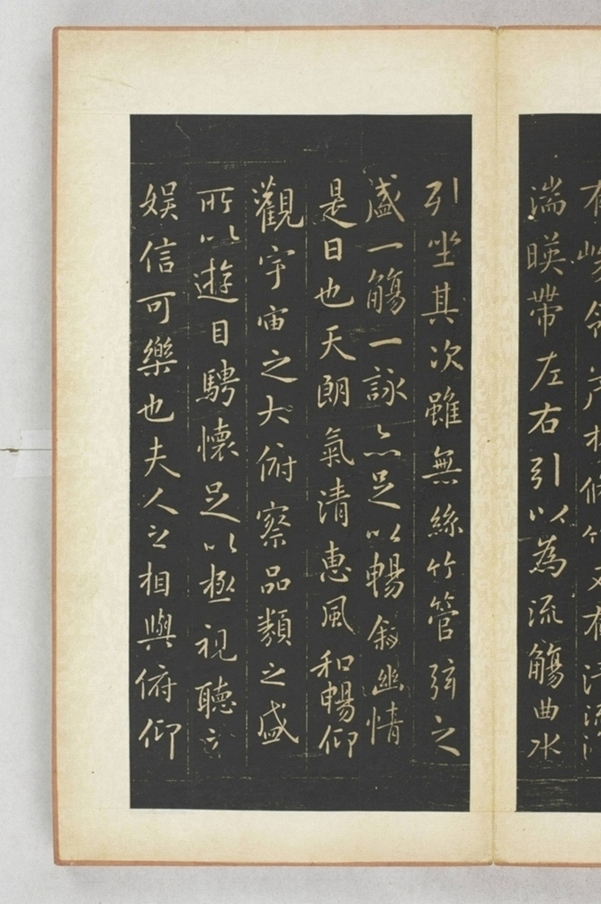 有峻領茂林脩竹又有清流激
湍暎帶左右引以為流觴曲水
引坐其次雖無絲竹管弦之
盛一觴一詠亦足以暢敘幽情
是日也天朗氣清惠風和暢仰
觀宇宙之大俯察品類之盛
所以遊目騁懷足以極視聽之
娛信可樂也夫人之相與俯仰